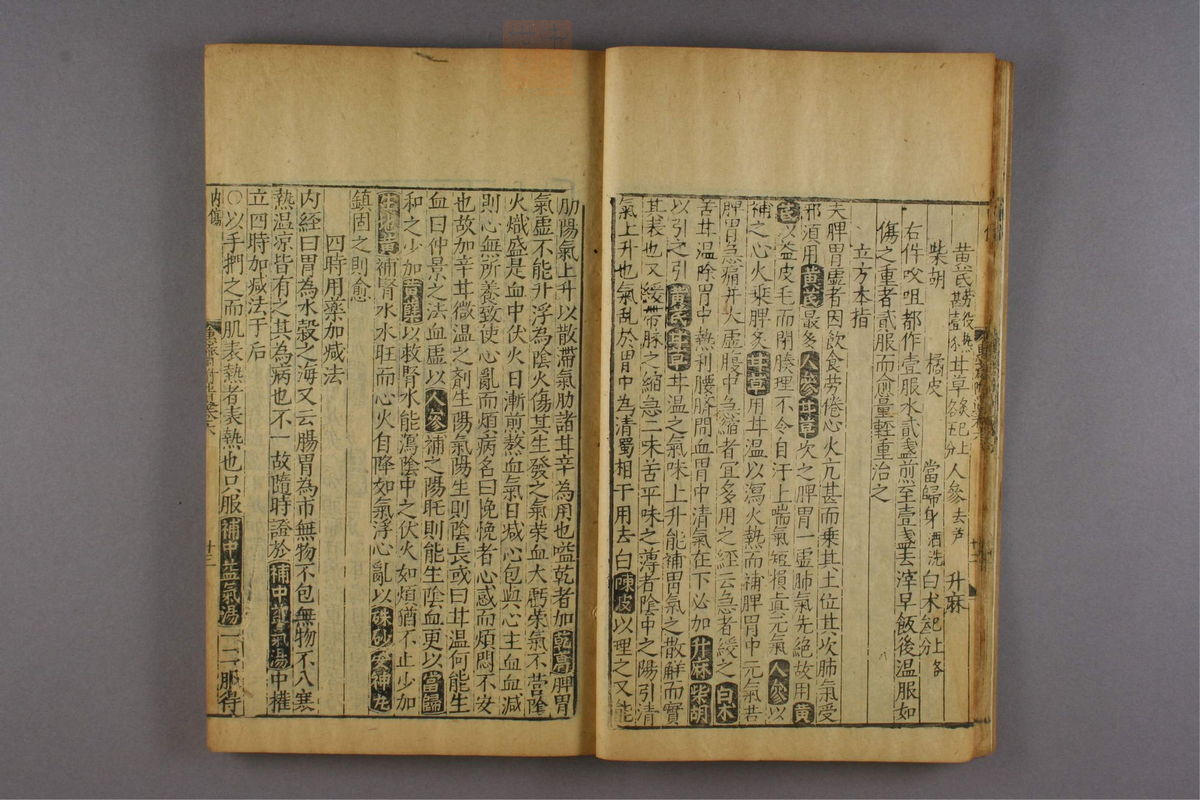 黄芪 甘草 人參去芦 升麻
柴胡 橘皮 當歸身酒洗 白术
右件㕮咀都作壹服水貳盞煎至壹盞去滓早飯後温服如
傷之重者貳服而愈量輕重治之
立方本指
夫脾胃虛者因飲食勞倦心火亢甚而乗其土位其次肺氣受
邪須用黄芪最多人參甘草次之脾胃一虛肺氣先絕故用黄
芪以益皮毛而閉腠理不令自汗上喘氣短損其元氣人參以
補之心火乗脾炙甘草用甘温以瀉火熱而補脾胃中元氣若
脾胃急痛并大虛腹中急縮者宜多用之經云急者緩之白术
苦甘温除胃中熱利腰臍間血胃中清氣在下必加升麻柴胡
以引之引黄芪甘草甘温之氣味上升能補胃氣之散解而實
其表也又緩帶脉之縮急二味苦平味之薄者陰中之陽引清
氣上升也氣亂於胃中為清濁相干用去白陳皮以理之又能
肋陽氣上升以散滯氣肋諸甘辛為用也嗌乾者加乾葛脾胃
氣虛不能升浮為陰火傷其生發之氣荣血大虧荣氣不营陰
火熾盛是血中伏火日漸煎熬血氣日减心包與心主血血减
則心無所養致使心亂而煩病名曰悗悗者心惑而煩悶不安
也故加辛甘微温之剤生陽氣陽生則陰長或曰甘温何能生
血曰仲景之法血虛以人參補之陽旺則能生陰血更以當歸
和之少加黄蘗以救腎水能瀉陰中之伏火如煩猶不止少加
生地黄補腎水水旺而心火自降如氣浮心亂以硃砂安神丸
鎮固之則愈
四時用藥加减法
内經曰胃為水穀之海又云腸胃為市無物不包無物不入寒
熱温凉皆有之其為病也不一故隨時證於補中益氣湯中權
立四時加减法于后
○以手捫之而肌表熱者表熱也只服補中益氣湯一二服得
内傷
廿三